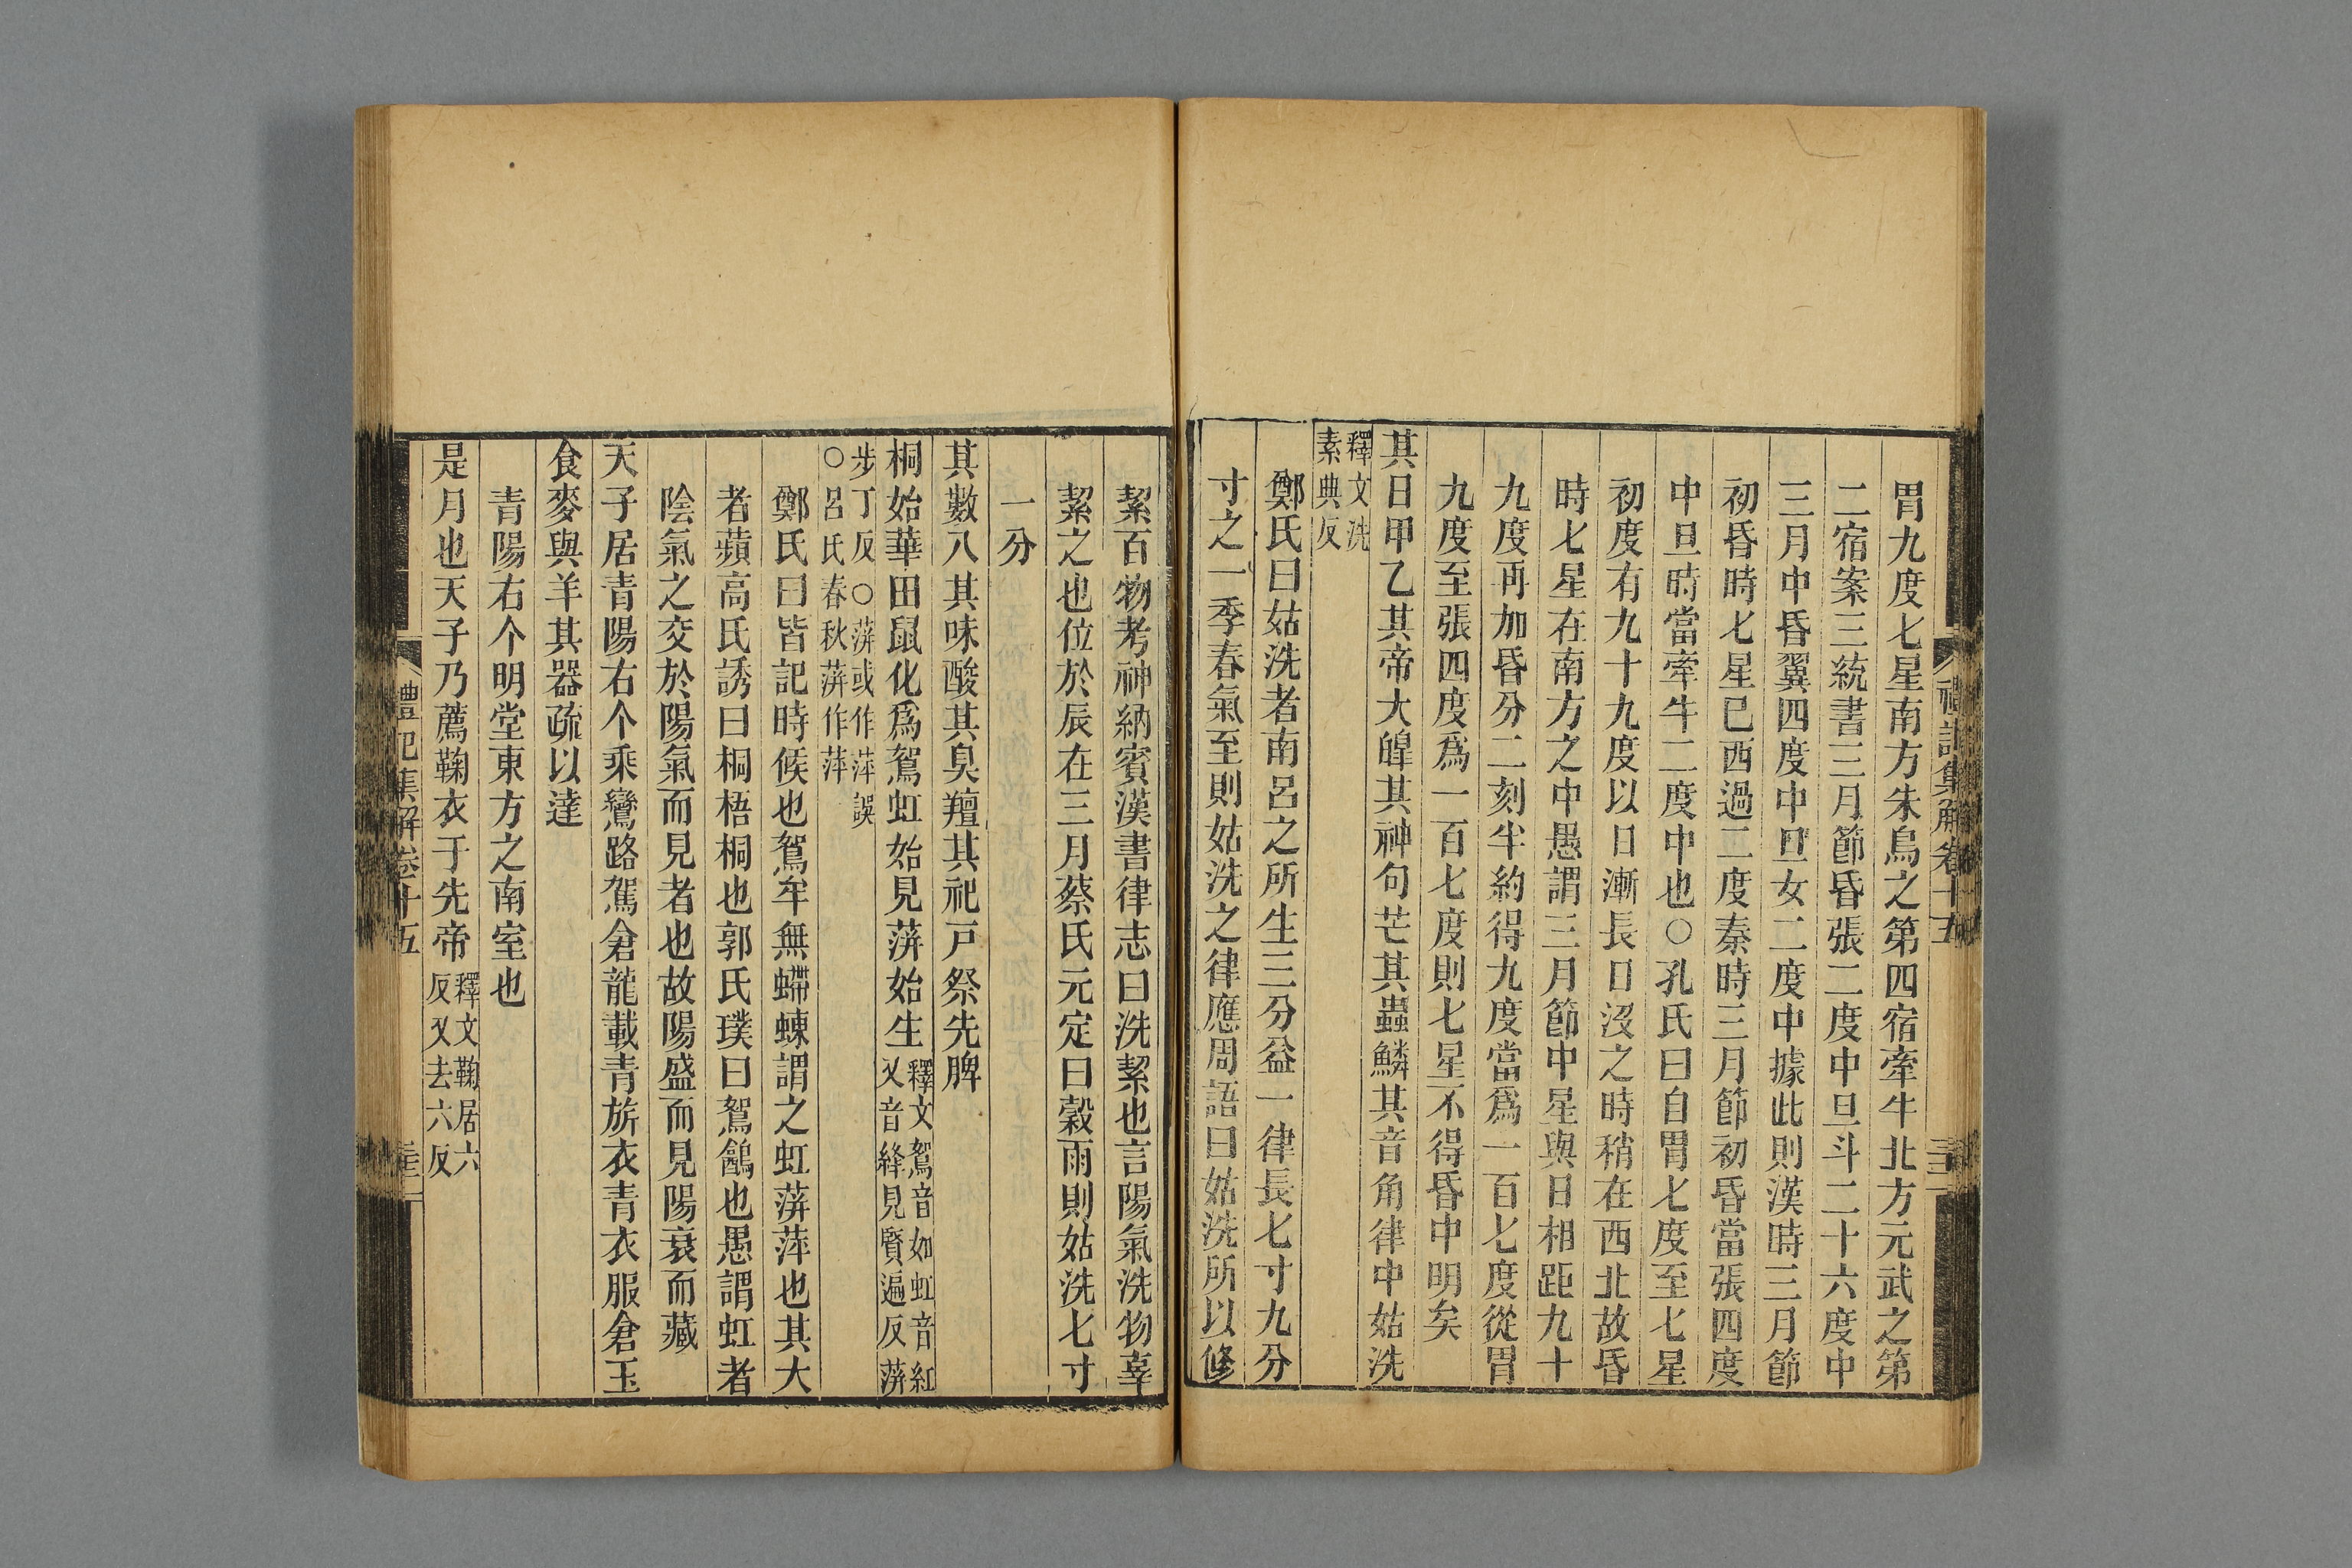 胃九度七星南方朱鳥之第四宿牽牛北方元武之第
二宿案三統書三月節昏張二度中旦斗二十六度中
三月中昏翼四度中旦女二度中據此則漢時三月節
初昏時七星已西過二度秦時三月節初昏當張四度
中旦時當牽牛二度中也○孔氏曰自胃七度至七星
初度有九十九度以日漸長日沒之時稍在西北故昏
時七星在南方之中愚謂三月節中星與日相距九十
九度再加昏分二刻半約得九度當爲一百七度從胃
九度至張四度爲一百七度則七星不得昏中明矣
其日甲乙其帝大皥其神句芒其蟲鱗其音角律中姑洗
釋文洗
素典反
鄭氏曰姑洗者南呂之所生三分益一律長七寸九分
寸之一季春氣至則姑洗之律應周語曰姑洗所以修
絜百物考神納賓漢書律志曰洗絜也言陽氣洗物辜
絜之也位於辰在三月蔡氏元定曰穀雨則姑洗七寸
一分
其數八其味酸其臭羶其祀戸祭先脾
桐始華田鼠化爲鴽虹始見蓱始生
釋文鴽音如虹音紅
又音絳見賢遍反蓱
步丁反○蓱或作萍誤
○呂氏春秋蓱作萍
鄭氏曰皆記時候也鴽牟無螮蝀謂之虹蓱萍也其大
者蘋高氏誘曰桐梧桐也郭氏璞曰鴽鷂也愚謂虹者
陰氣之交於陽氣而見者也故陽盛而見陽衰而藏
天子居青陽右个乘鸞路駕倉龍載青旂衣青衣服倉玉
食麥與羊其器疏以達
青陽右个明堂東方之南室也
是月也天子乃薦鞠衣于先帝
釋文鞠居六
反又去六反
禮記集解卷十五